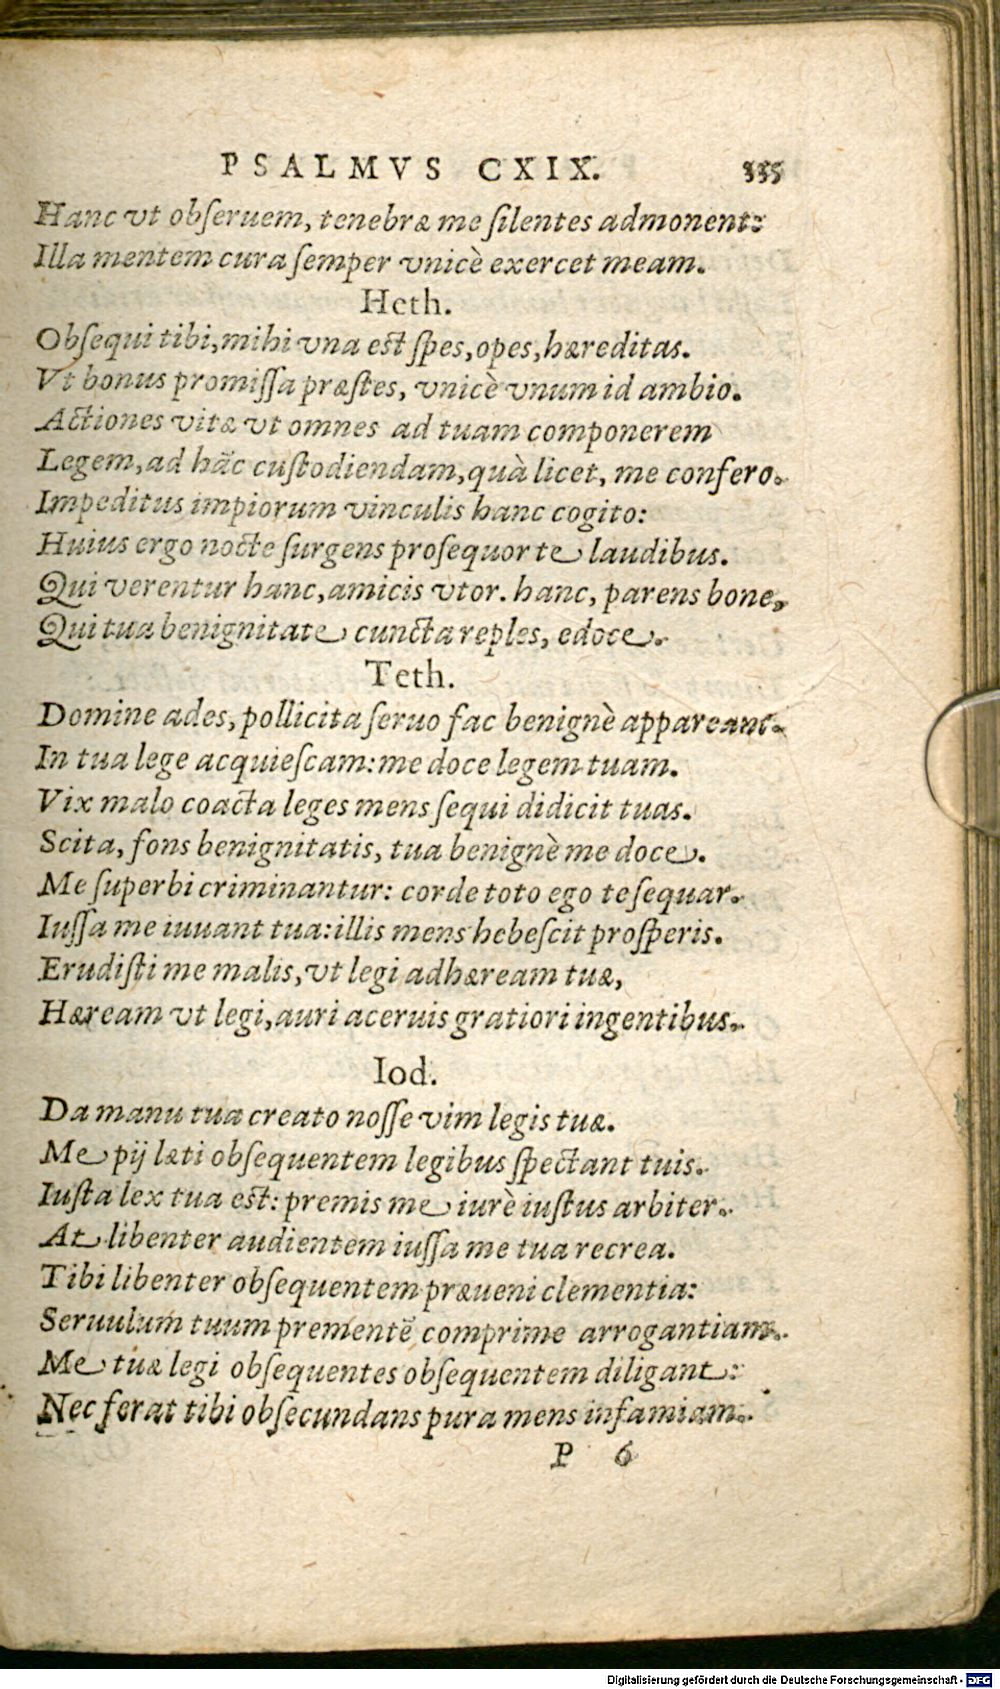 PSALMVS CXIX. 335
Hanc vt obſeruem, tenebræ me ſilentes admonent:
Illa mentem cura ſemper vnicè exercet meam.
Heth.
Obſequi tibi, mihi vna eſt ſpes, opes, hæreditas.
Vt bonus promiſſa præſtes, vnicè vnum id ambio.
Actiones vitæ vt omnes ad tuam componerem
Legem, ad hãc cuſtodiendam, quà licet, me confero.
Impeditus impiorum vinculis hanc cogito:
Huius ergo nocte ſurgens proſequor te laudibus.
Qui verentur hanc, amicis vtor. hanc, parens bone,
Qui tua benignitate cuncta reples, edoce.
Teth.
Domine ades, pollicita ſeruo fac benignè appareant.
In tua lege acquieſcam: me doce legem tuam.
Vix malo coacta leges mens ſequi didicit tuas.
Scita, fons benignitatis, tua benignè me doce.
Me ſuperbi criminantur: corde toto ego te ſequar.
Iuſſa me iuuant tua: illis mens hebeſcit proſperis.
Erudiſti me malis, vt legi adhæream tuæ,
Hæream vt legi, auri aceruis gratiori ingentibus.
Iod.
Da manu tua creato noſſe vim legis tuæ.
Me pij læti obſequentem legibus ſpectant tuis.
Iuſta lex tua eſt: premis me iurè iuſtus arbiter.
At libenter audientem iuſſa me tua recrea.
Tibi libenter obſequentem præueni clementia:
Seruulum tuum prementẽ comprime arrogantiam.
Me tuæ legi obſequentes obſequentem diligant:
Nec ferat tibi obſecundans pura mens infamiam.
P 6
Digitalisierung gefördert durch die Deutsche Forschungsgemeinschaft - DFG